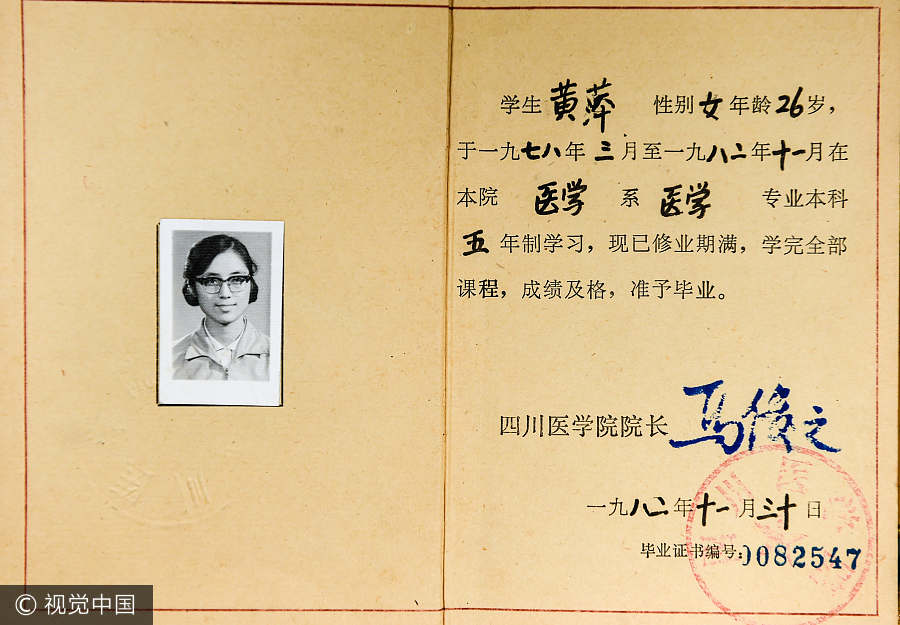 学生 黄萍 性别女年龄26岁，
于一九七八年 三月至一九八二年十一月在
本院 医学 系 医学 专业本科
五年制学习，现已修业期满，学完全部
课程，成绩及格，准予毕业。
四川医学院院长
一九八二年十一月三十日
毕业证书编号：0082547
© 视觉中国